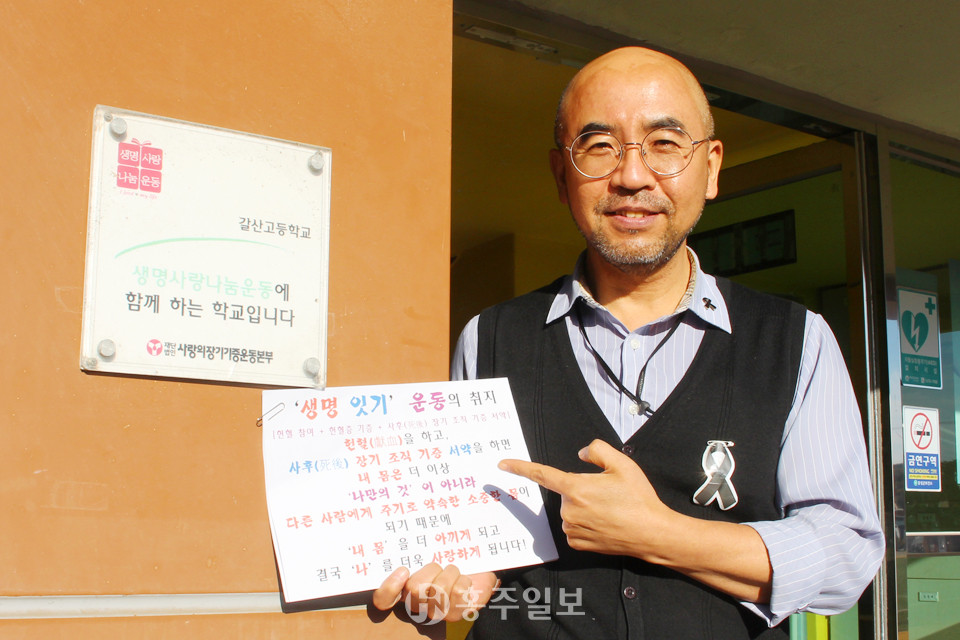 생명 사랑
나눔 운동
갈산고등학교
생명사랑나눔운동에
함께 하는 학교입니다
재단
법인 사랑의장기기증운동본부
'생명 잇기' 운동의 취지
(헌혈 참여 + 헌혈증 기증 + 사후(死後) 장기 조직 기증 서약)
헌혈(獻血)을 하고,
사후(死後) 장기 조직 기증 서약을 하면
내 몸은 더 이상
'나만의 것' 이 아니라
다른 사람에게 주기로 약속한 소중한 몸이
되기 때문에
'내 몸' 을 더 아끼게 되고
결국 '나' 를 더욱 사랑하게 됩니다!
금연구역
NO SMOKING
홍주일보